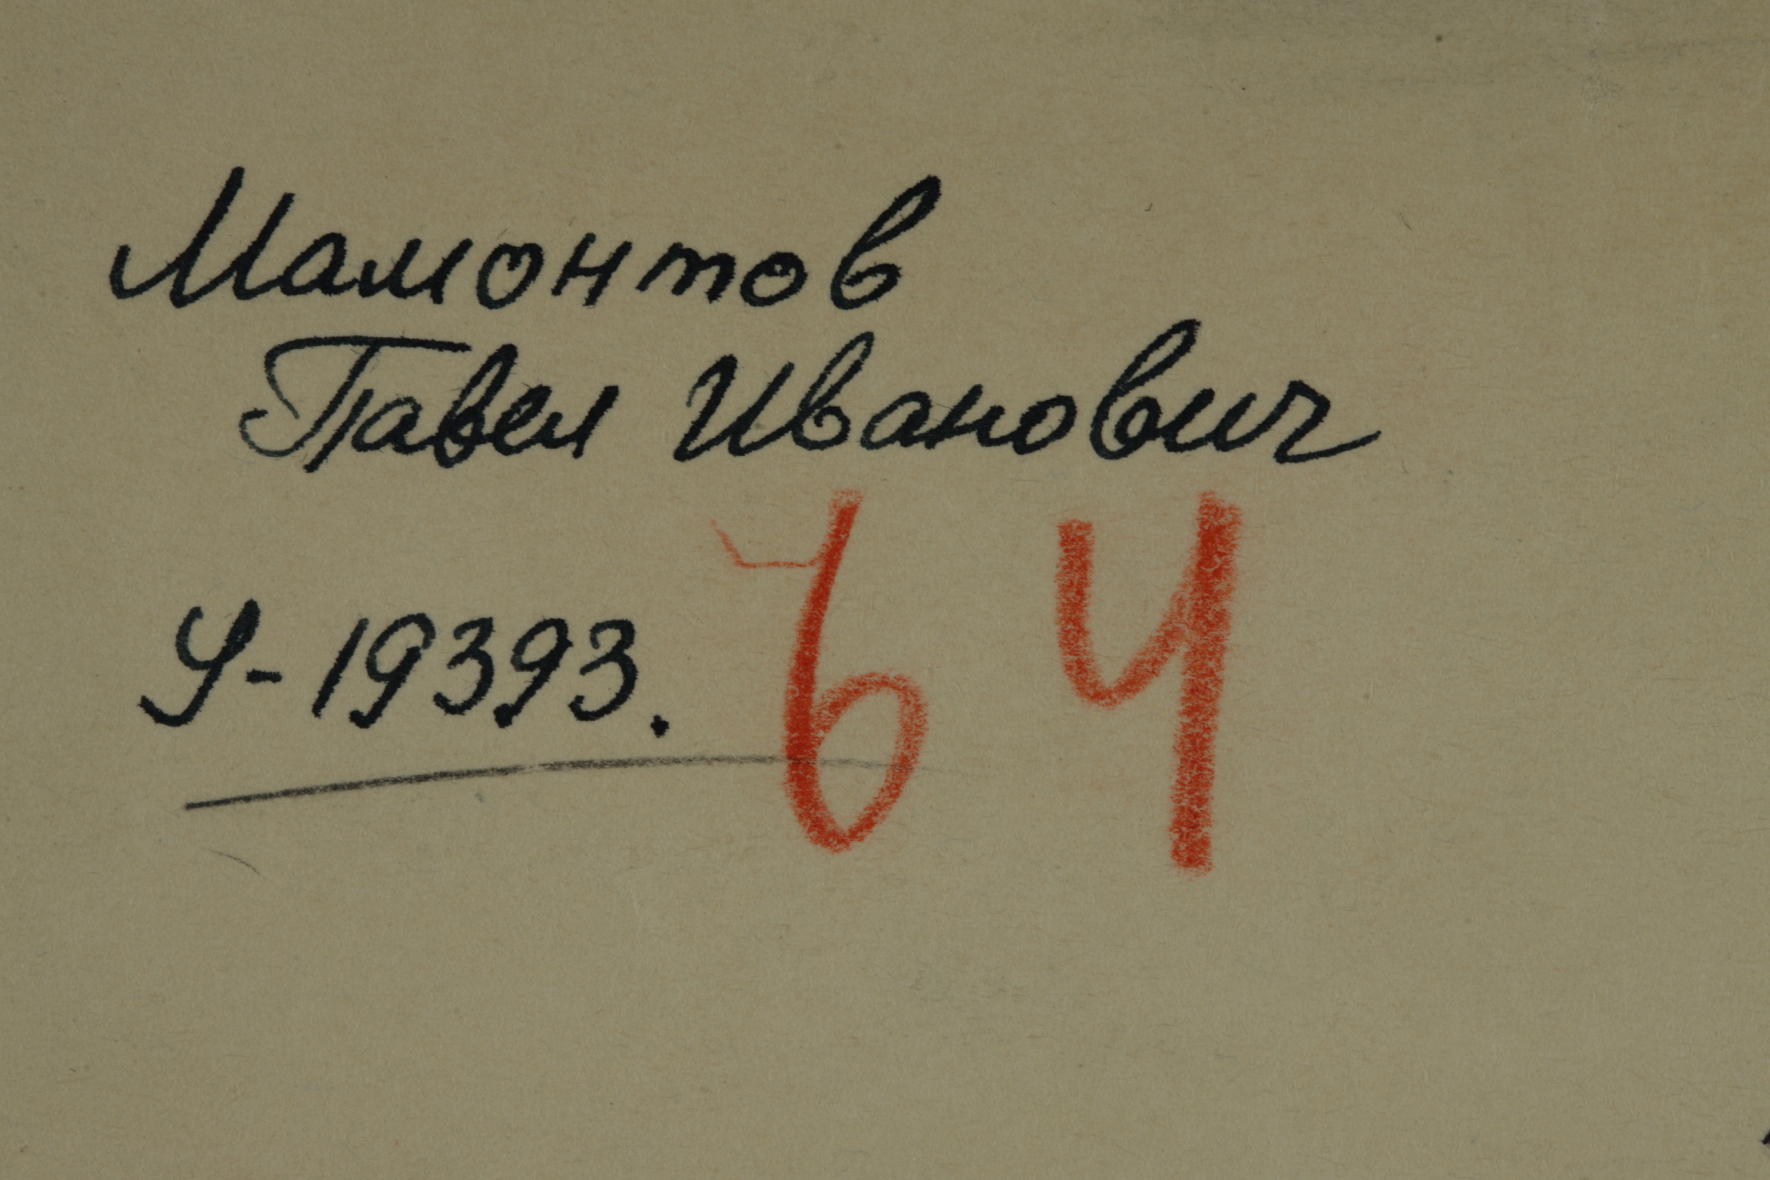 Мамонтов
Павел Иванович
У-19393.
64